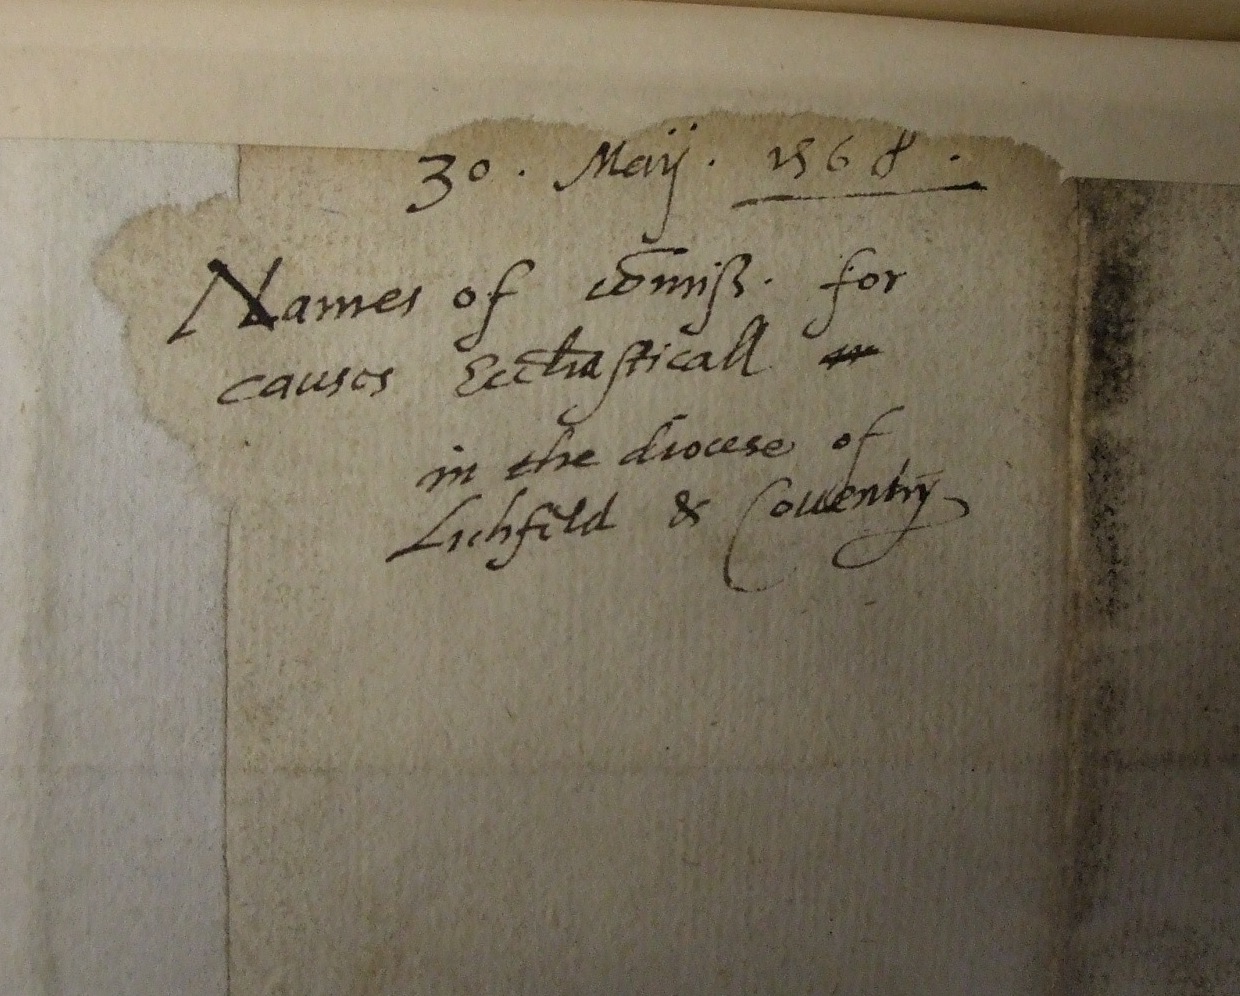 30 . Maij . 1568 .
Names of com̄iss. for
causes Ecclīasticall
in the diocese of
Lichfild & Couentry